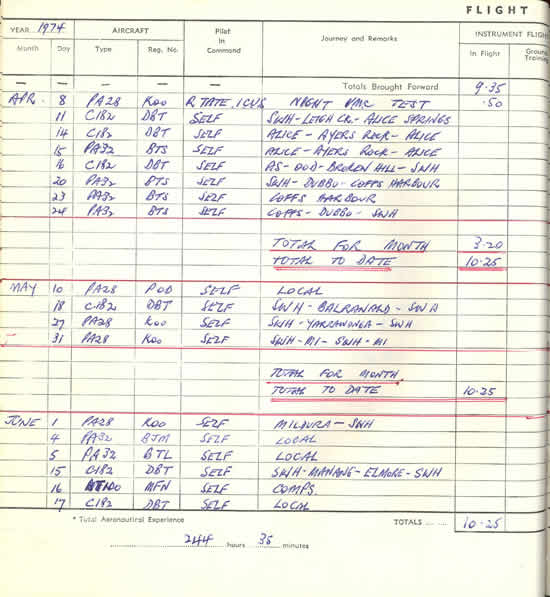 FLIGHT
YEAR 1974 AIRCRAFT Pilot in Command Journey and Remarks INSTRUMENT FLIGH
Month Day Type Reg. No. In Flight Ground Training
— — — — — Totals Brought Forward 9.35
APR. 8 PA28 KOO R TATE, ICUS NIGHT VMC TEST .50
11 C182 DBT SELF SWH-LEIGH CK.-ALICE SPRINGS
14 C182 DBT SELF ALICE-AYERS ROCK-ALICE
15 PA32 BTS SELF ALICE-AYERS ROCK-ALICE
16 C182 DBT SELF AS-OOD-BROKEN HILL-SWH
20 PA32 BTS SELF SWH-DUBBO-COFFS HARBOUR
23 PA32 BTS SELF COFFS HARBOUR
24 PA32 BTS SELF COFFS-DUBBO-SWH
TOTAL FOR MONTH 3.20
TOTAL TO DATE 10.25
MAY 10 PA28 POD SELF LOCAL
18 C182 DBT SELF SWH-BALRANALD-SWH
27 PA28 KOO SELF SWH-YARRAWONGA-SWH
31 PA28 KOO SELF SWH-MI-SWH-MI
TOTAL FOR MONTH
TOTAL TO DATE 10.25
JUNE 1 PA28 KOO SELF MILDURA-SWH
4 PA32 BJM SELF LOCAL
5 PA32 BTL SELF LOCAL
15 C182 DBT SELF SWH-MANANG-ELMORE-SWH
16 MFN SELF COMPS.
17 C182 DBT SELF LOCAL
* Total Aeronautical Experience TOTALS ...... 10.25
244 hours 35 minutes